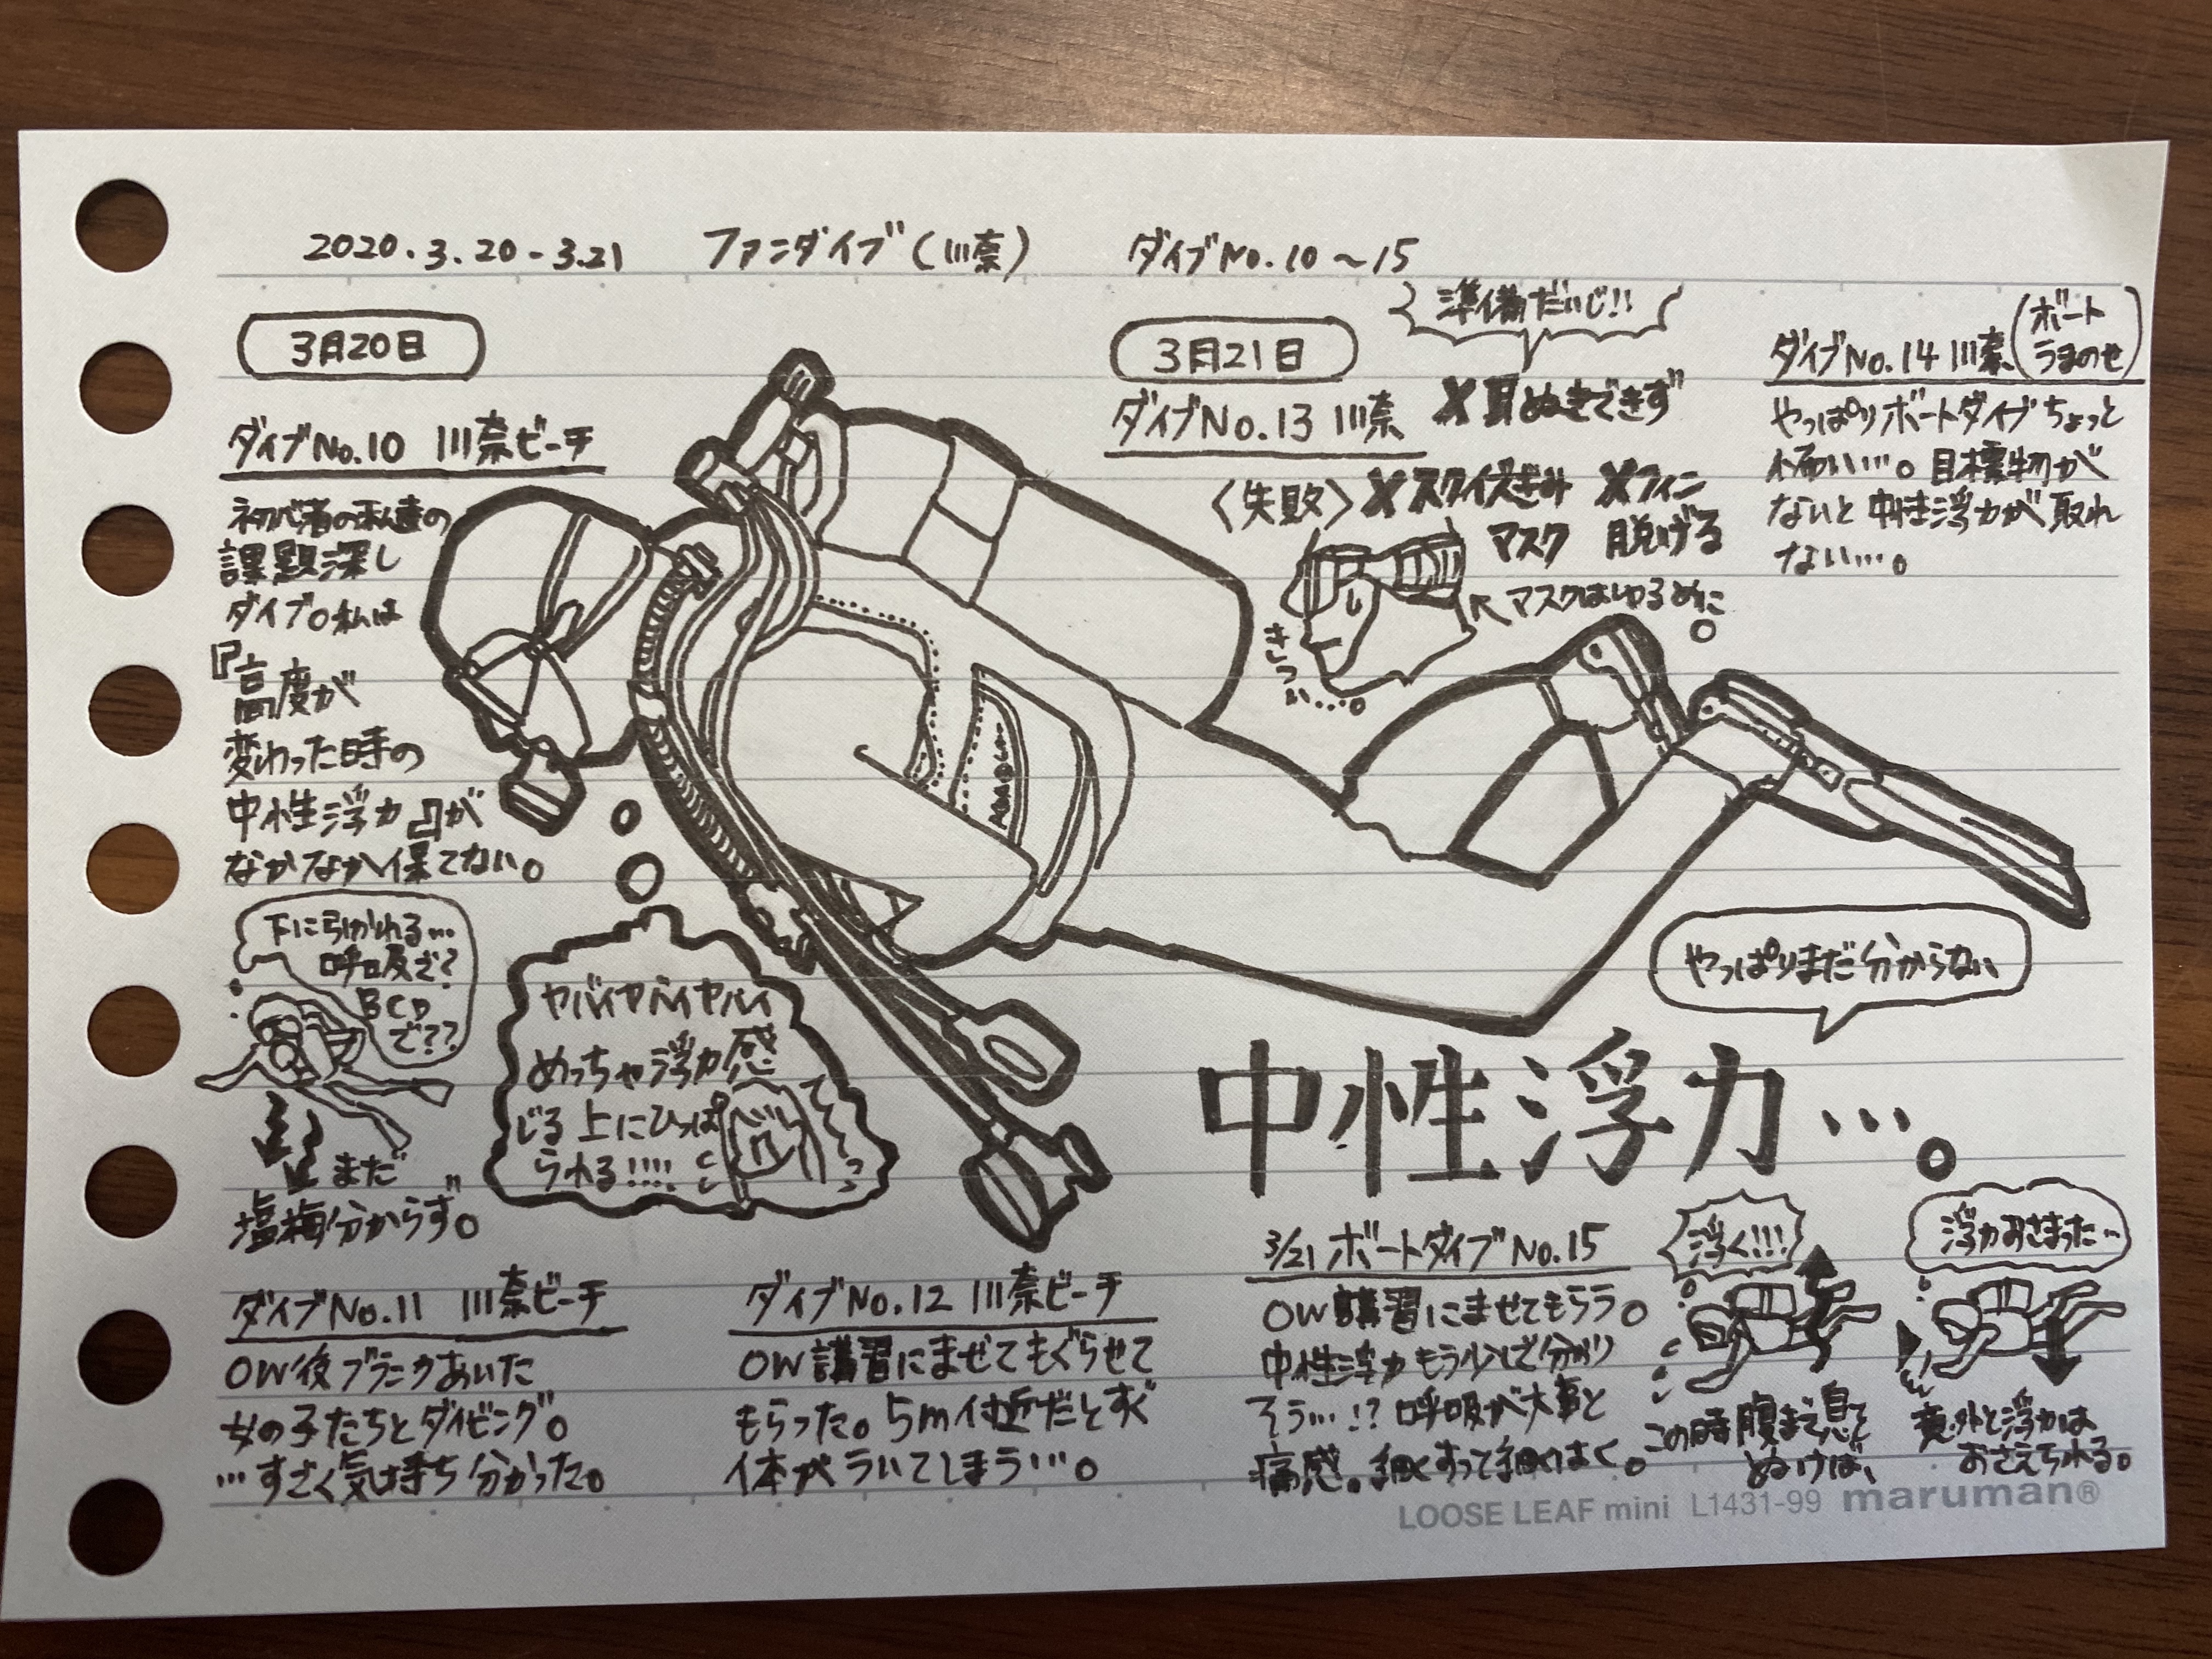 2020.3.20-3.21 ファンダイブ(川奈) ダイブNo.10〜15
3月20日
ダイブNo.10 川奈ビーチ
初心者の私達の
課題探し
ダイブ。私は
『高度が
変わった時の
中性浮力』が
なかなか保てない。
下に引かれる…
呼吸で?
BCD
で??
まだ
塩梅分からず。
ヤバイヤバイヤバイ
めっちゃ浮力感
じる 上にひっぱ
られる!!!!
ダイブNo.11 川奈ビーチ
OW後ブランクあいた
女の子たちとダイビング。
…すごく気持ち分かった。
ダイブNo.12 川奈ビーチ
OW講習にまぜてもぐらせて
もらった。5m付近だとすぐ
体がういてしまう…。
3月21日
準備だいじ!!
ダイブNo.13 川奈
✗耳ぬきできず
〈失敗〉✗スクイズぎみ ✗フィン
マスク 脱げる
マスクはゆるめに
きつい…。
ダイブNo.14 川奈(ボート
うまのせ)
やっぱりボートダイブちょっと
怖い…。目標物が
ないと中性浮力が取れ
ない…。
やっぱりまだ分からない
中性浮力…。
3/21 ボートダイブNo.15
OW講習にまぜてもらう。
中性浮力もう少しで分かり
そう…!? 呼吸が大事と
痛感。細くすって細くはく。
浮く!!!
この時腹まで息を
ぬけば、
浮力おさまった…
意外と浮力は
おさえられる。
LOOSE LEAF mini L1431-99 maruman®